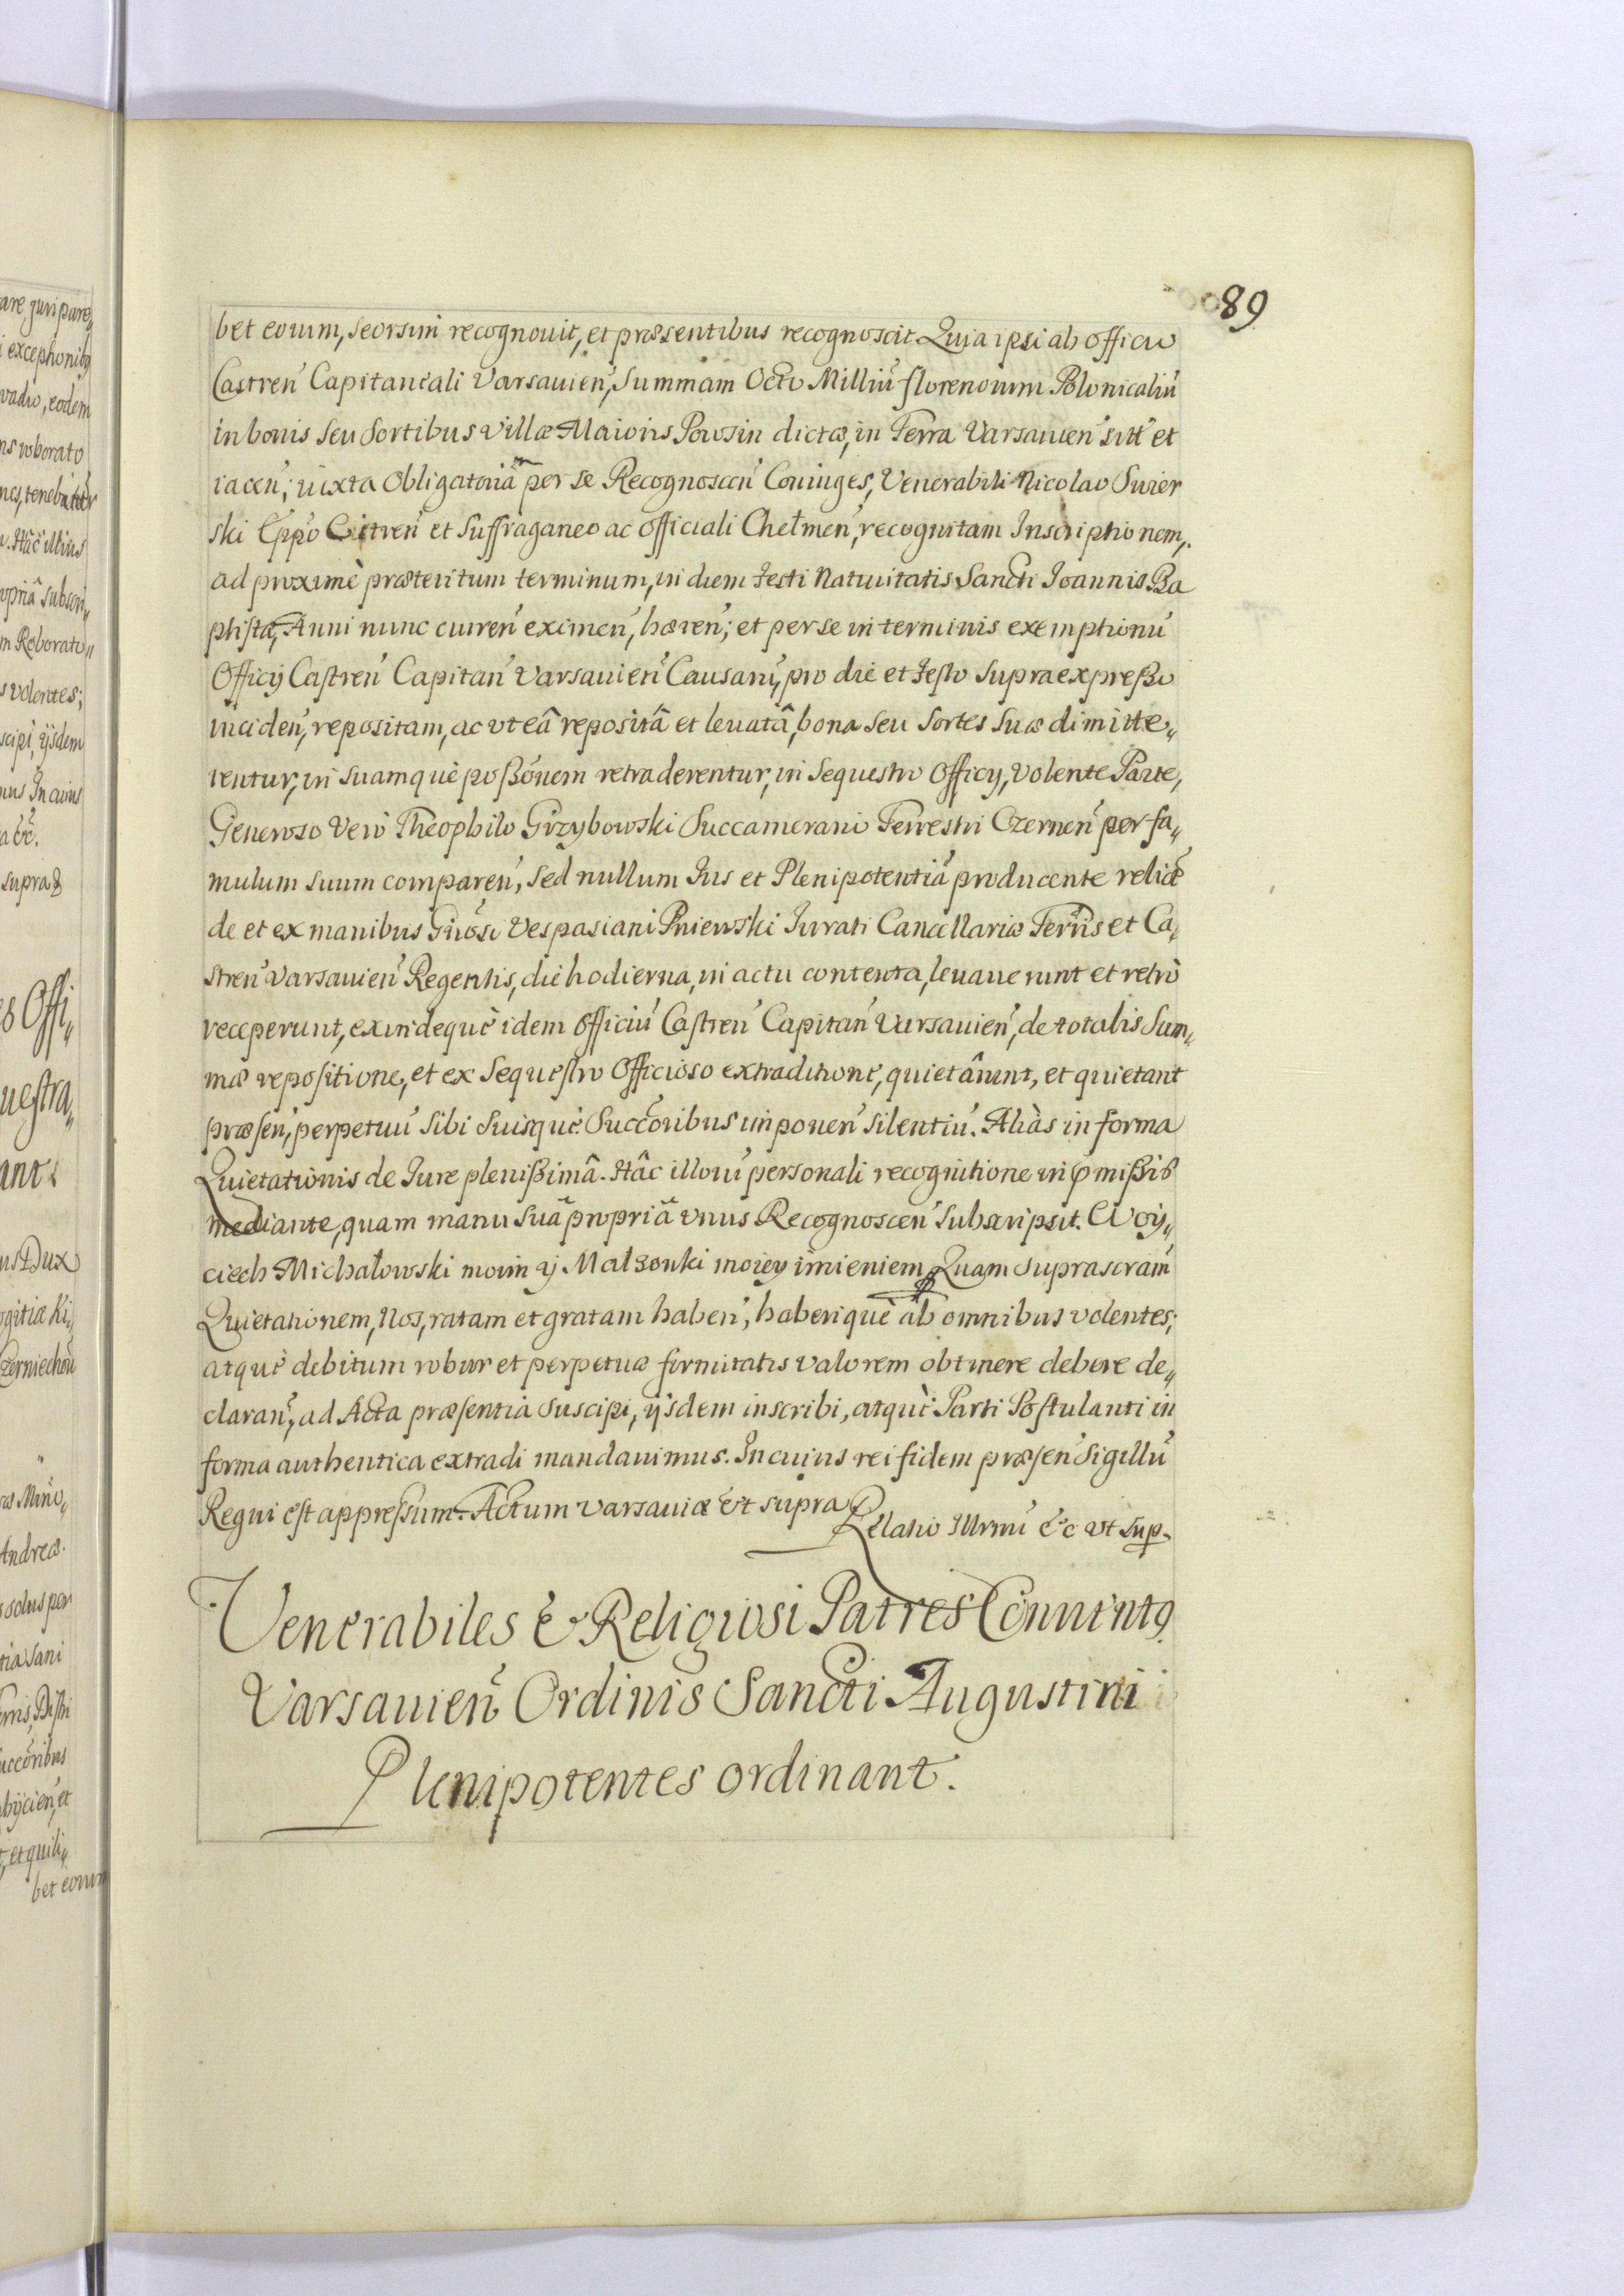 89
bet eorum, seorsim recognouit, et præsentibus recognoscit. Quia ipsi ab officio
Castreń Capitaneali Varsauień, Summam Octo Milliũ florenorum Polonicaliũ
in bonis seu Sortibus Villæ Maioris Powsin dictæ, in Terra Varsauień sitt̃ et
iaceń; iuxta Obligatoriã per se Recognosceń Coniuges, Venerabili Nicolao Swier
ski Eppo Citreń et Suffraganeo ac Officiali Chełmeń, recognitam Inscriptionem,
ad proximè præteritum terminum, in diem Festi Natiuitatis Sancti Joannis Ba
ptistæ, Anni nunc curreń eximeń, hæreń; et per se in terminis exemptionũ
Officij Castreń Capitań Varsauień Causarũ, pro die et Festo supraexpresso
incideń, repositam, ac vt eâ repositâ et leuatâ, bona seu Sortes suæ dimitte„
rentur, in suamquè possõnem retraderentur, in Sequestro Officij, volente Parte,
Generoso verò Theophilo Grzybowski Succamerario Terrestri Czerneń per fa„
mulum suum compareń, sed nullum Jus et Plenipotentiã producente relict̃
de et ex manibus Gnõsi Vespasiani Pniewski Jurati Cancellariæ Terrris et Ca„
streń Varsauień Regentis, die hodierna, in actu contenta, leuauerunt et retrò
receperunt, exindequè idem Officiũ Castreń Capitań Varsauień, de totalis Sum„
mæ repositione, et ex Sequestro Officioso extraditione, quietârunt, et quietant
præseń, perpetuũ sibi suisquè Succõribus imponeń silentiũ. Aliàs in forma
Quietationis de Jure plenissimâ. Hâc illorũ personali recognitione in p̃missis
mediante, quam manu suã propriã vnus Recognosceń subscripsit. Woy„
ciech Michałowski moim ÿ Małzonki moiey imieniem. Quam suprascram̃
Quietationem, Nos, ratam et gratam habeń, haberiquè ab omnibus volentes;
atquè debitum robur et perpetuæ firmitatis valorem obtinere debere de„
clarań, ad Acta præsentia suscipi, ijsdem inscribi, atquè Parti Postulanti in
forma authentica extradi mandauimus. In cuius rei fidem præseń Sigillũ
Regni est appressum. Actum Varsauiæ vt supra
Relatio Illrmi &c vt sup.
Venerabiles & Religiosi Patres Conuentꝰ
Varsauień Ordinis Sancti Augustini
Plenipotentes ordinant.